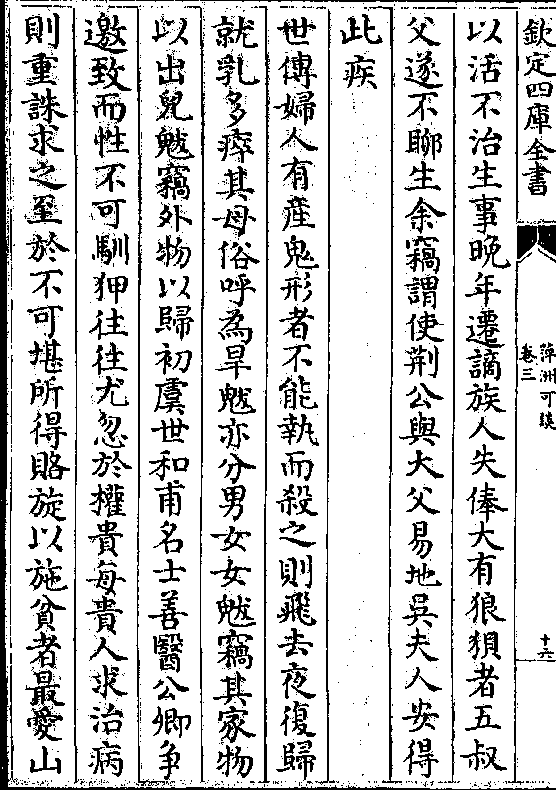 欽定四庫全書
萍洲可談
卷三
十六
以活不治生事晚年遷謫族人失俸大有狼狽者五叔
父遂不聊生余竊謂使荆公與大父易地吳夫人安得
此疾
世傳婦人有產鬼形者不能執而殺之則飛去夜復歸
就乳多瘁其母俗呼為旱魃亦分男女女魃竊其家物
以出兒魃竊外物以歸初虞世和甫名士善醫公卿争
邀致而性不可馴狎往往尤忽於權貴每貴人求治病
則重誅求之至於不可堪所得賂旋以施貧者最愛山